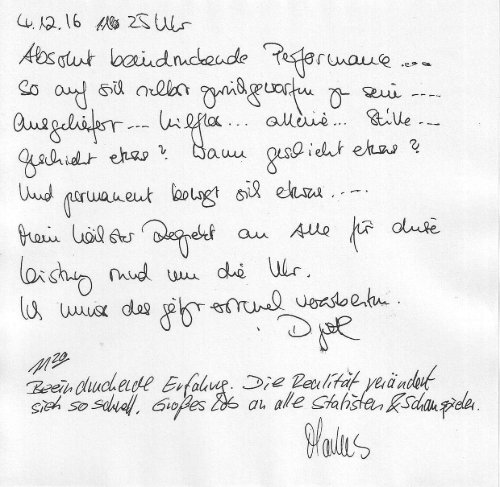 4.12.16 1125 Uhr
Absolut beeindruckende Performance....
So auf sich selber zurückgeworfen zu sein ----
Ausgeliefert --- hilflos... alleine... Stille ---
Geschieht etwas? Wann geschieht etwas?
Und permanent bewegt sich etwas ....
Mein höchster Respekt an Alle für diese
Leistung rund um die Uhr.
Ich muss das jetzt erstmal verarbeiten.
1129
Beeindruckende Erfahrung. Die Realität verändert
sich so schnell. Großes Lob an alle Statisten & Schauspieler.
Markus